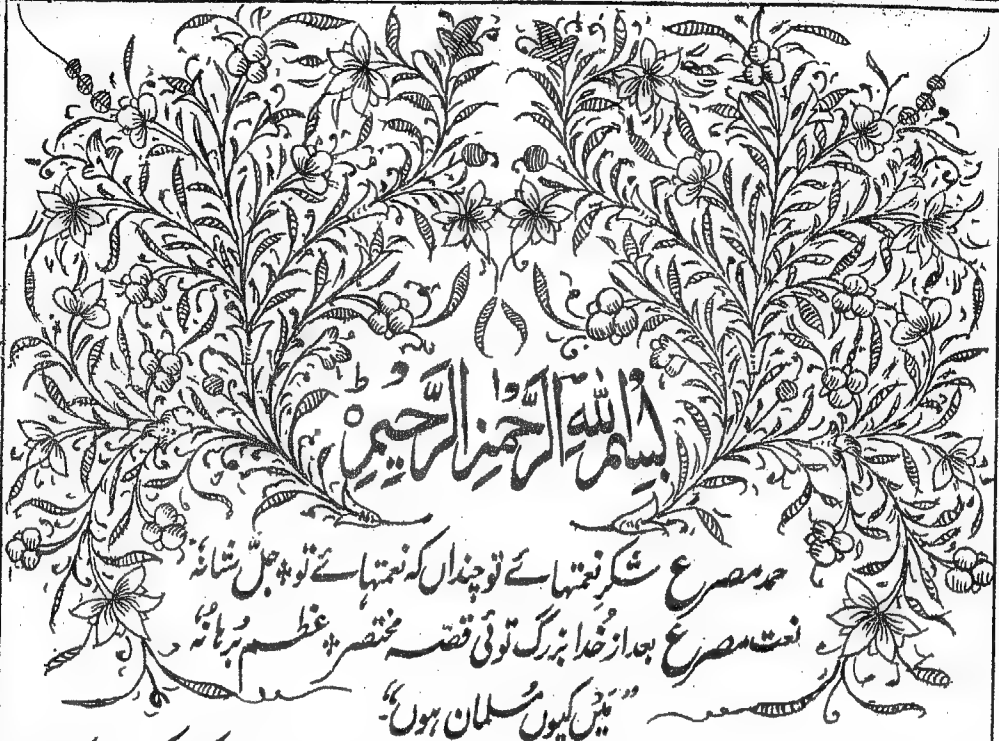 بِسْمِ اللهِ الرَّحْمٰنِ الرَّحِيْمِ ط
حمد مصرع شکرِ نعمتہائے تو چنداں کہ نعمتہائے تو * جلّ شانہٗ
نعت مصرع بعد از خُدا بزرگ توئی قصّہ مختصر * عظم بُرہانُہٗ
”مَیں کیوں مُسلمان ہوں“